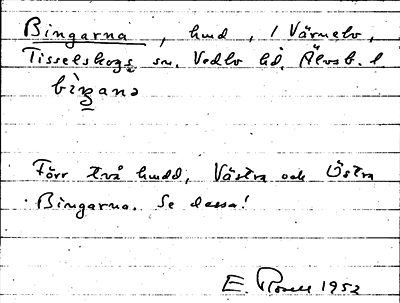 Bingarna, hmd, i Värmelv,
Tisselskogs sn. Vedbo hd. Älvsb. l
bìŋanə
Förr två hmdd, Västra och Östra
Bingarna. Se dessa!
E. Rosell 1952